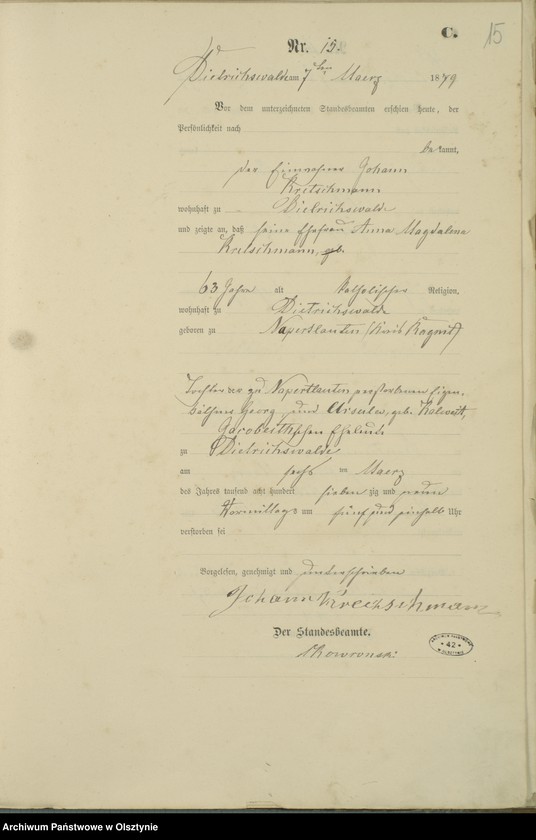 C.
15
Nr. 15.
Dietrichswalde am 7ten Maerz 1879
Vor dem unterzeichneten Standesbeamten erschien heute, der
Persönlichkeit nach
bekannt,
der Einwohner Johann
Kretschmann
wohnhaft zu Dietrichswalde
und zeigte an, daß seine Ehefrau Anna Magdalena
Kretschmann, geb.
63 Jahre alt katholischer Religion,
wohnhaft zu Dietrichswalde
geboren zu Napertlauken (Kreis Ragnit)
Tochter der zu Napertlauken verstorbenen Eigen-
Georg und Ursula, geb.
schen Eheleute
zu Dietrichswalde
am sechs ten Maerz
des Jahres tausend acht hundert sieben zig und neun
Vormittags um fünf und einhalb Uhr
verstorben sei
Vorgelesen, genehmigt und unterschrieben
Johann Kretschmann
Der Standesbeamte.
Skowronski
42
Archiwum Państwowe w Olsztynie